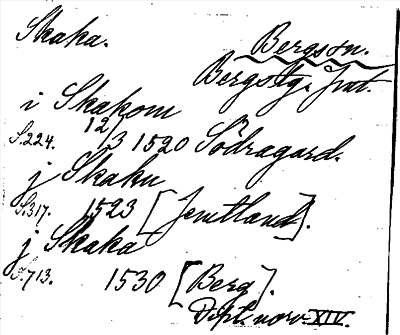 Skaka.
Bergs sn.
Bergs tg. Jmt.
i Skakom
S. 224. 12/3 1520 Södragard.
j Skaku
S. 317. 1523 [Jemtland].
j Skaka
S. 713. 1530 [Berg].
Dipl. norv. XIV.